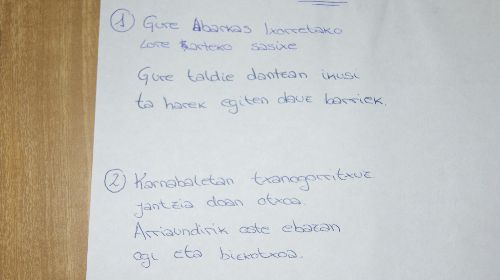 ① Gure Abarkas Ixorretako
Lore tarteko sasixe
Gure taldie dantzan ikusi
ta harek egiten dauz barriek.
② Karnabaletan txanogorritxuz
jantzia doan otxoa.
Arriaundirik este ebazan
ogi eta bizkotxoa.